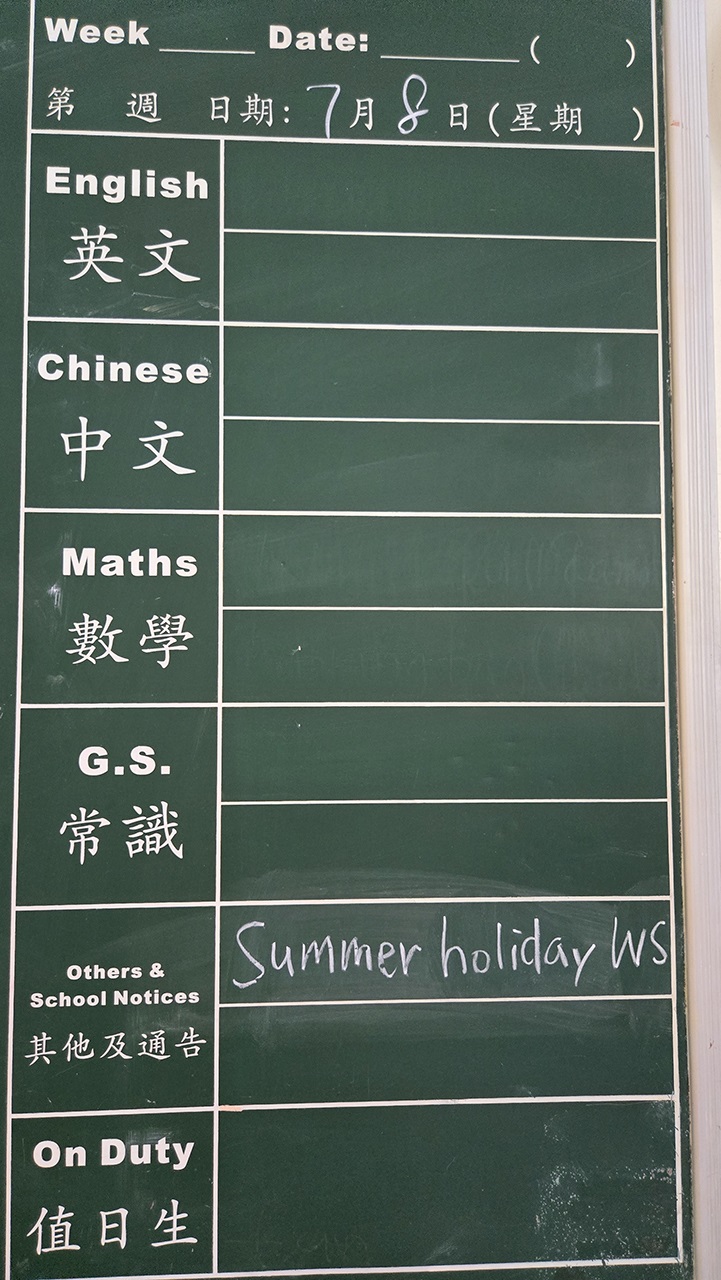 Week ______ Date: _________ (      )
第 週 日期: 7月8日(星期 )
English
英文
Chinese
中文
Maths
數學
G.S.
常識
Others &
School Notices
其他及通告
Summer holiday WS
On Duty
值日生